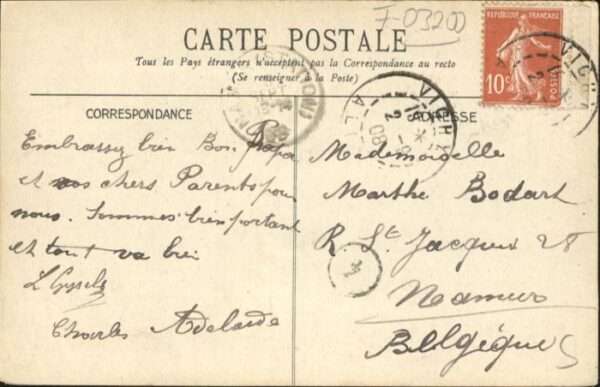 F-03200
CARTE POSTALE
Tous les Pays étrangers n'acceptent pas la Correspondance au recto
(Se renseigner à la Poste)
REPUBLIQUE FRANÇAISE
10c
VICHY
CORRESPONDANCE
ADRESSE
Embrassez bien Bon Papa
et nos chers Parents pour
nous. Sommes bien portant
et tout va bien
Charles Adelaide
Mademoiselle
Marthe Bodart
R. St Jacques 28
Namur
Belgique